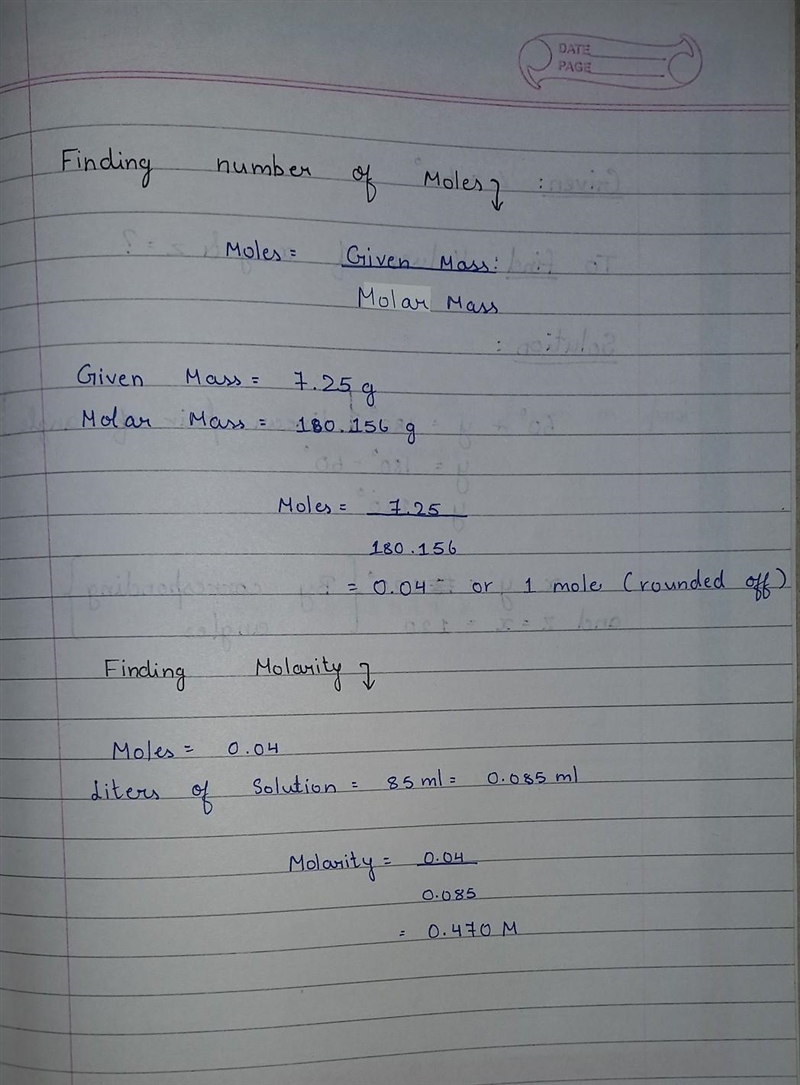 DATE
PAGE
Finding number of Moles :
Moles = Given Mass:
Molar Mass
Given Mass = 7.25 g
Molar Mass = 180.156 g
Moles = 7.25
180.156
= 0.04 or 1 mole (rounded off)
Finding Molarity
Moles = 0.04
Liters of Solution = 85 ml = 0.085 ml
Molarity = 0.04
0.085
= 0.470 M